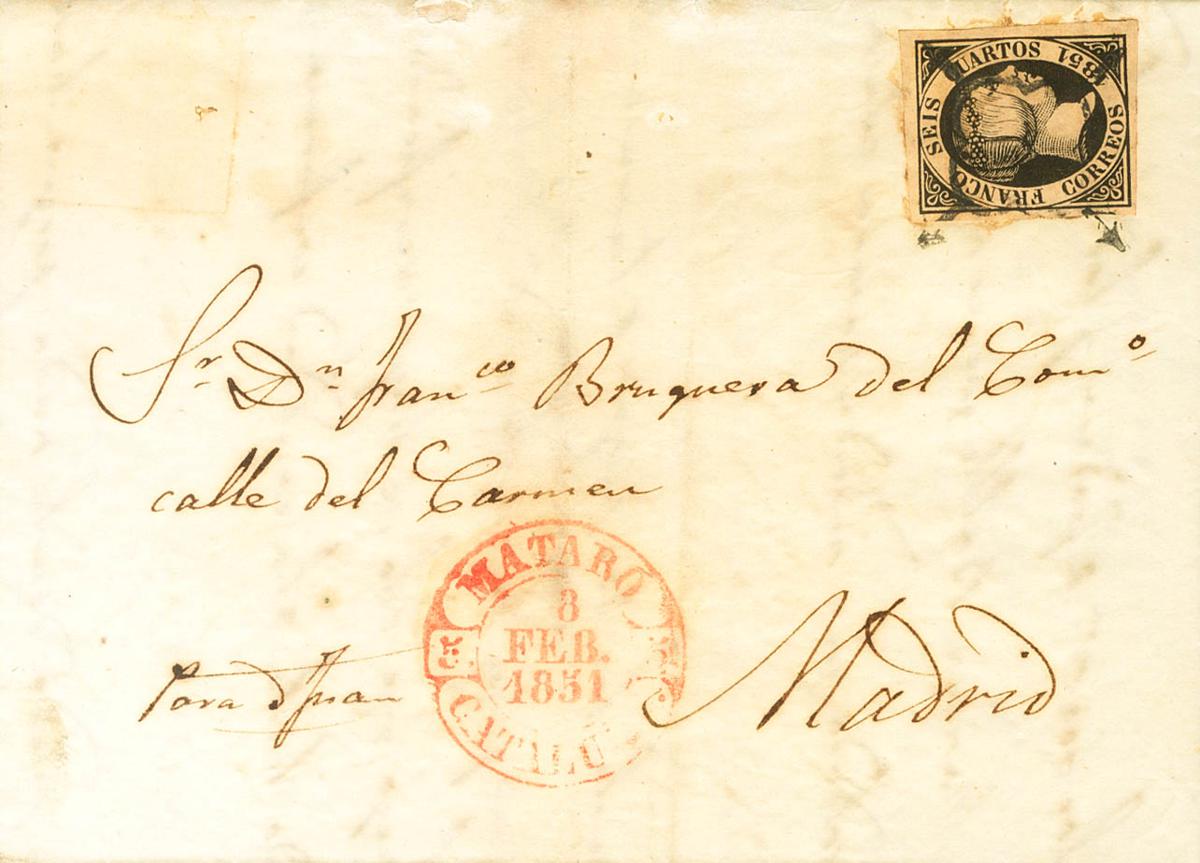 SEIS CUARTOS 1851
FRANCO CORREOS
Sr. Dn. Franco Bruguera del Como
calle del Carmen
MATARÓ
8
FEB.
1851
CATALU
Madrid